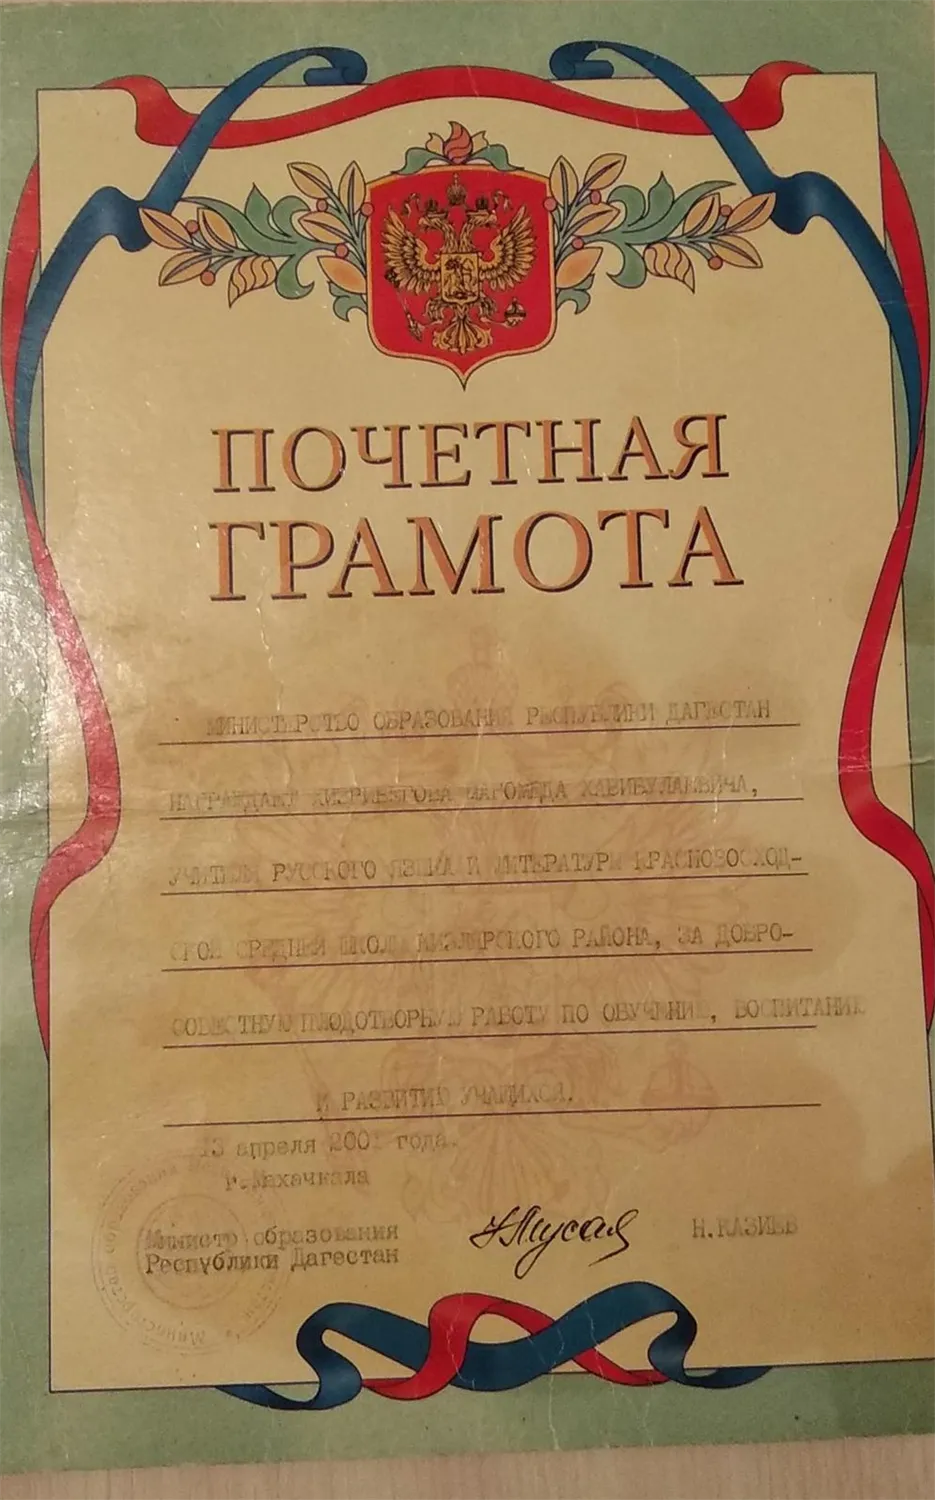 ПОЧЕТНАЯ
ГРАМОТА
МИНИСТЕРСТВО ОБРАЗОВАНИЯ РЕСПУБЛИКИ ДАГЕСТАН
НАГРАЖДАЕТ МАГОМЕДА ХАБИБУЛАЕВИЧА,
УЧИТЕЛЯ РУССКОГО ЯЗЫКА И ЛИТЕРАТУРЫ КРАСНОВОСХОД-
СКОЙ СРЕДНЕЙ ШКОЛЫ КИЗЛЯРСКОГО РАЙОНА, ЗА ДОБРО-
СОВЕСТНУЮ ПЛОДОТВОРНУЮ РАБОТУ ПО ОБУЧЕНИЮ, ВОСПИТАНИЮ
И РАЗВИТИЮ УЧАЩИХСЯ.
13 апреля 2001 года.
г.Махачкала
Министр образования
Республики Дагестан
Н.КАЗИЕВ